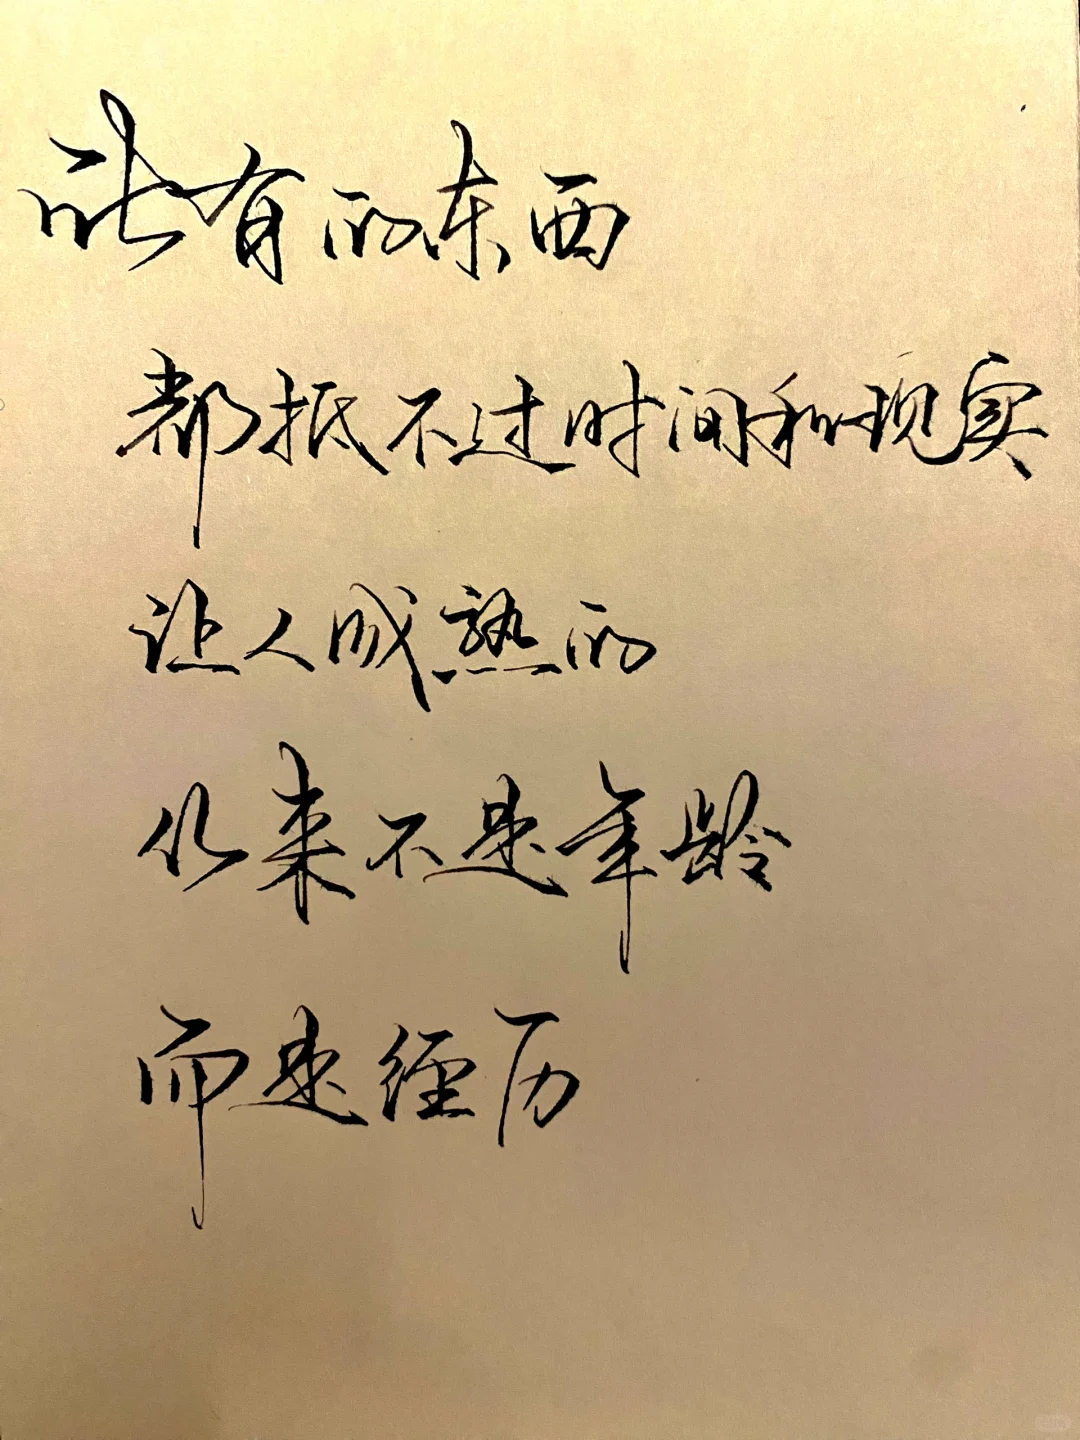 所有的东西
都抵不过时间和现实
让人成熟的
从来不是年龄
而是经历